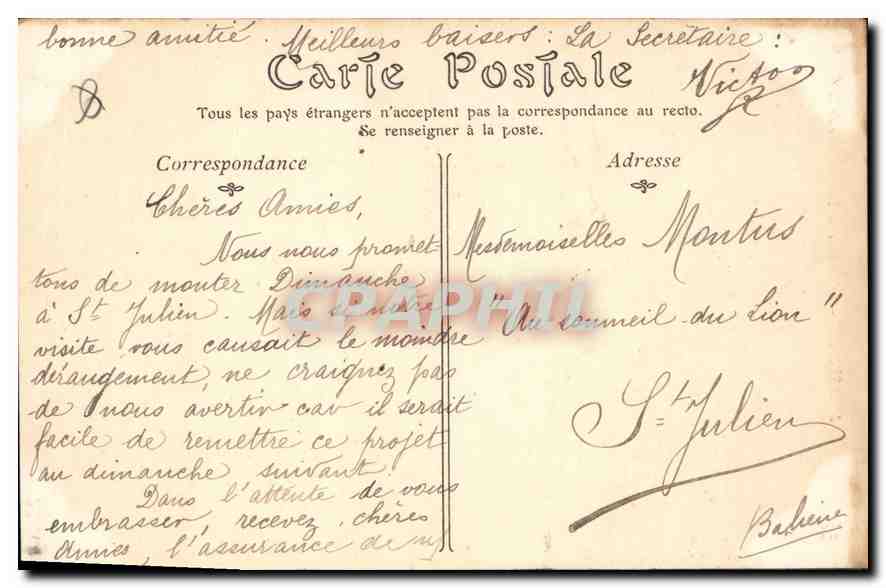 bonne amitié. Meilleurs baisers : La Secrétaire :
Victor
Carte Postale
Tous les pays étrangers n'acceptent pas la correspondance au recto.
Se renseigner à la poste.
Correspondance
Chères Amies,
Nous nous promet-
tons de monter Dimanche
à St Julien. Mais si notre
visite vous causait le moindre
dérangement, ne craignez pas
de nous avertir car il serait
facile de remettre ce projet
au dimanche suivant.
Dans l'attente de vous
embrasser, recevez, chères
Amies, l'assurance de
Adresse
Mesdemoiselles Montus
"Au sommeil du Lion"
St Julien
CPAPHIL